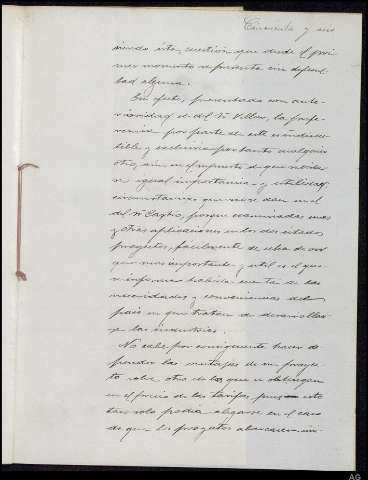 Cincuenta y uno
siendo esta cuestion que desde el pri
mer momento se presenta sin dificul
tad alguna.
En efecto, presentado con ante
rioridad el del Sr Villar, la prefe
rencia por parte de este es indiscu
tible y exclusiva por tanto cualquier
otro, aun en el supuesto de que no
igual importancia y utilidad,
circunstancias que no se dan en el
del Sr Castro, porque examinadas unas
y otras aplicaciones en los dos citados
proyectos, facilmente se echa de ver
que mas importante y util es el que
informa
necesidades y conveniencias del
pais en que tratan de desarrollar
se las industrias.
No cabe por consiguiente hacer de
pender las ventajas de un proyec
to sobre otro de los que se distinguen
en el precio de las tarifas pues esto
tan solo podia alegarse en el caso
de que los proyectos abarcasen
AG